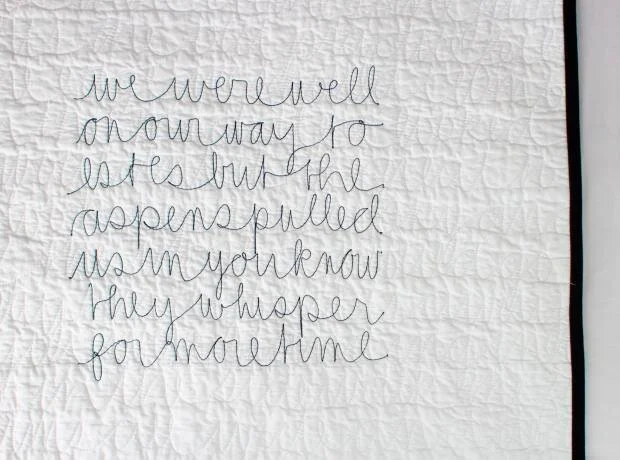 we were well
on our way to
estes but the
aspens pulled
us in you know
they whisper
for more time